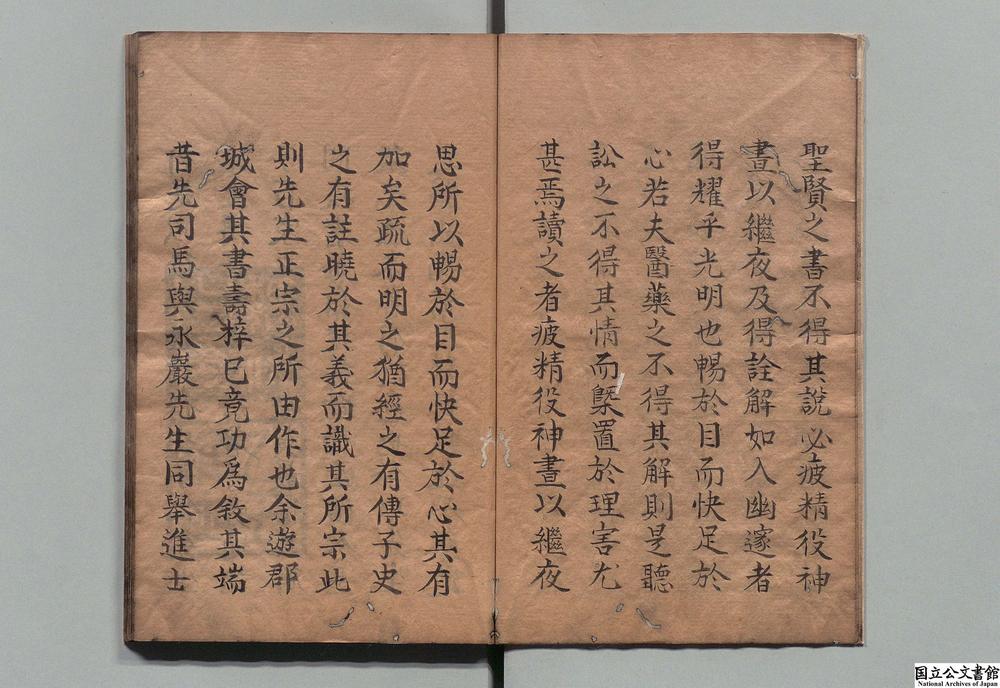 聖賢之書不得其說必疲精役神
晝以繼夜及得詮解如入幽邃者
得耀乎光明也暢於目而快足於
心若夫醫藥之不得其解則是聽
訟之不得其情而槩置於理害尤
甚焉讀之者疲精役神晝以繼夜
思所以暢於目而快足於心其有
加矣疏而明之猶經之有傳子史
之有註曉於其義而識其所宗此
則先生正宗之所由作也余遊郡
城會其書壽梓已竟功為敘其端
昔先司馬與永巖先生同舉進士
国立公文書館
National Archives of Japan